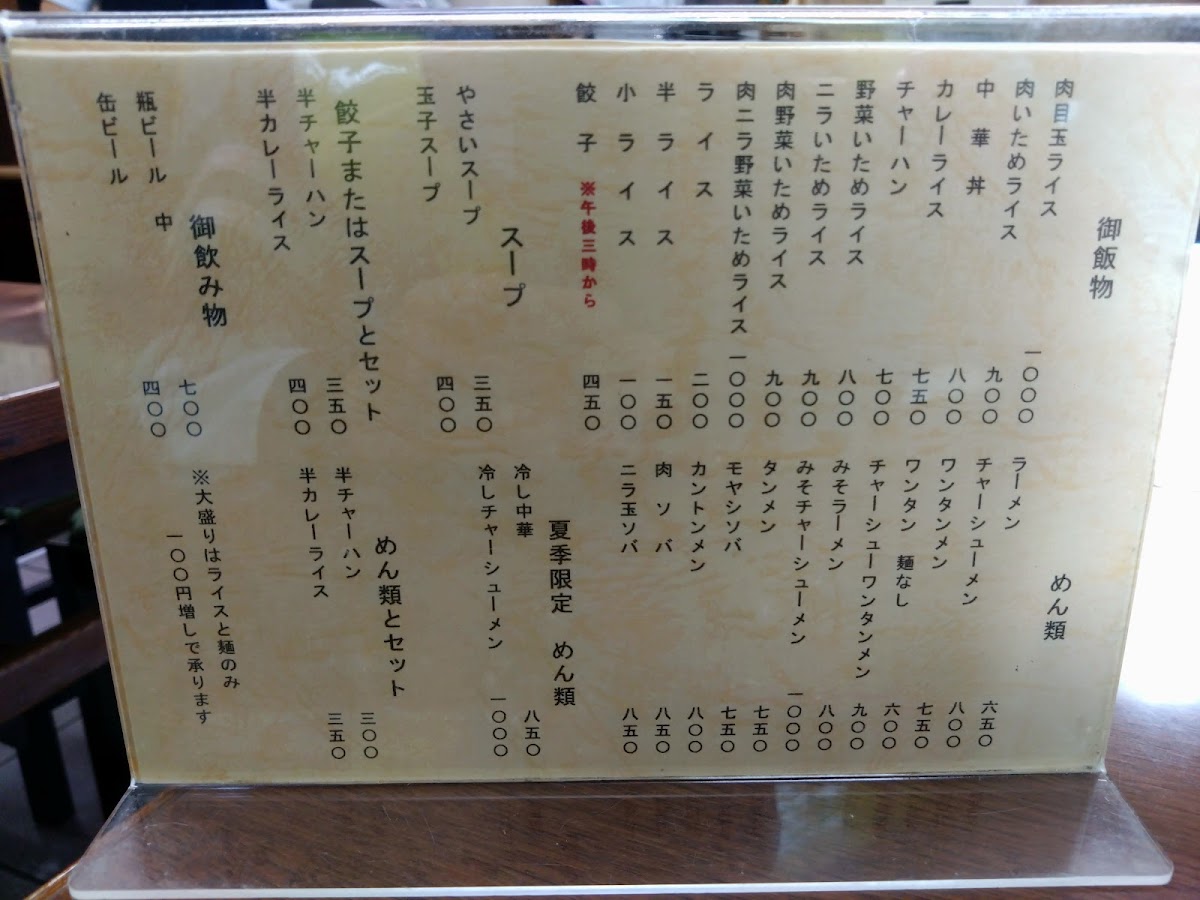 御飯物
肉目玉ライス 一〇〇〇
肉いためライス 九〇〇
中華丼 八〇〇
カレーライス 七五〇
チャーハン 七〇〇
野菜いためライス 八〇〇
ニラいためライス 九〇〇
肉野菜いためライス 九〇〇
肉ニラ野菜いためライス 一〇〇〇
ライス 二〇〇
半ライス 一五〇
小ライス 一〇〇
餃子 ※午後三時から 四五〇
スープ
やさいスープ 三五〇
玉子スープ 四〇〇
餃子またはスープとセット
半チャーハン 三五〇
半カレーライス 四〇〇
御飲み物
瓶ビール 中 七〇〇
缶ビール 四〇〇
めん類
ラーメン 六五〇
チャーシューメン 八〇〇
ワンタンメン 七五〇
ワンタン 麺なし 六〇〇
チャーシューワンタンメン 九〇〇
みそラーメン 八〇〇
みそチャーシューメン 一〇〇〇
タンメン 七五〇
モヤシソバ 七五〇
カントンメン 八〇〇
肉ソバ 八五〇
ニラ玉ソバ 八五〇
夏季限定 めん類
冷し中華 八五〇
冷しチャーシューメン 一〇〇〇
めん類とセット
半チャーハン 三〇〇
半カレーライス 三五〇
※大盛りはライスと麺のみ
一〇〇円増しで承ります